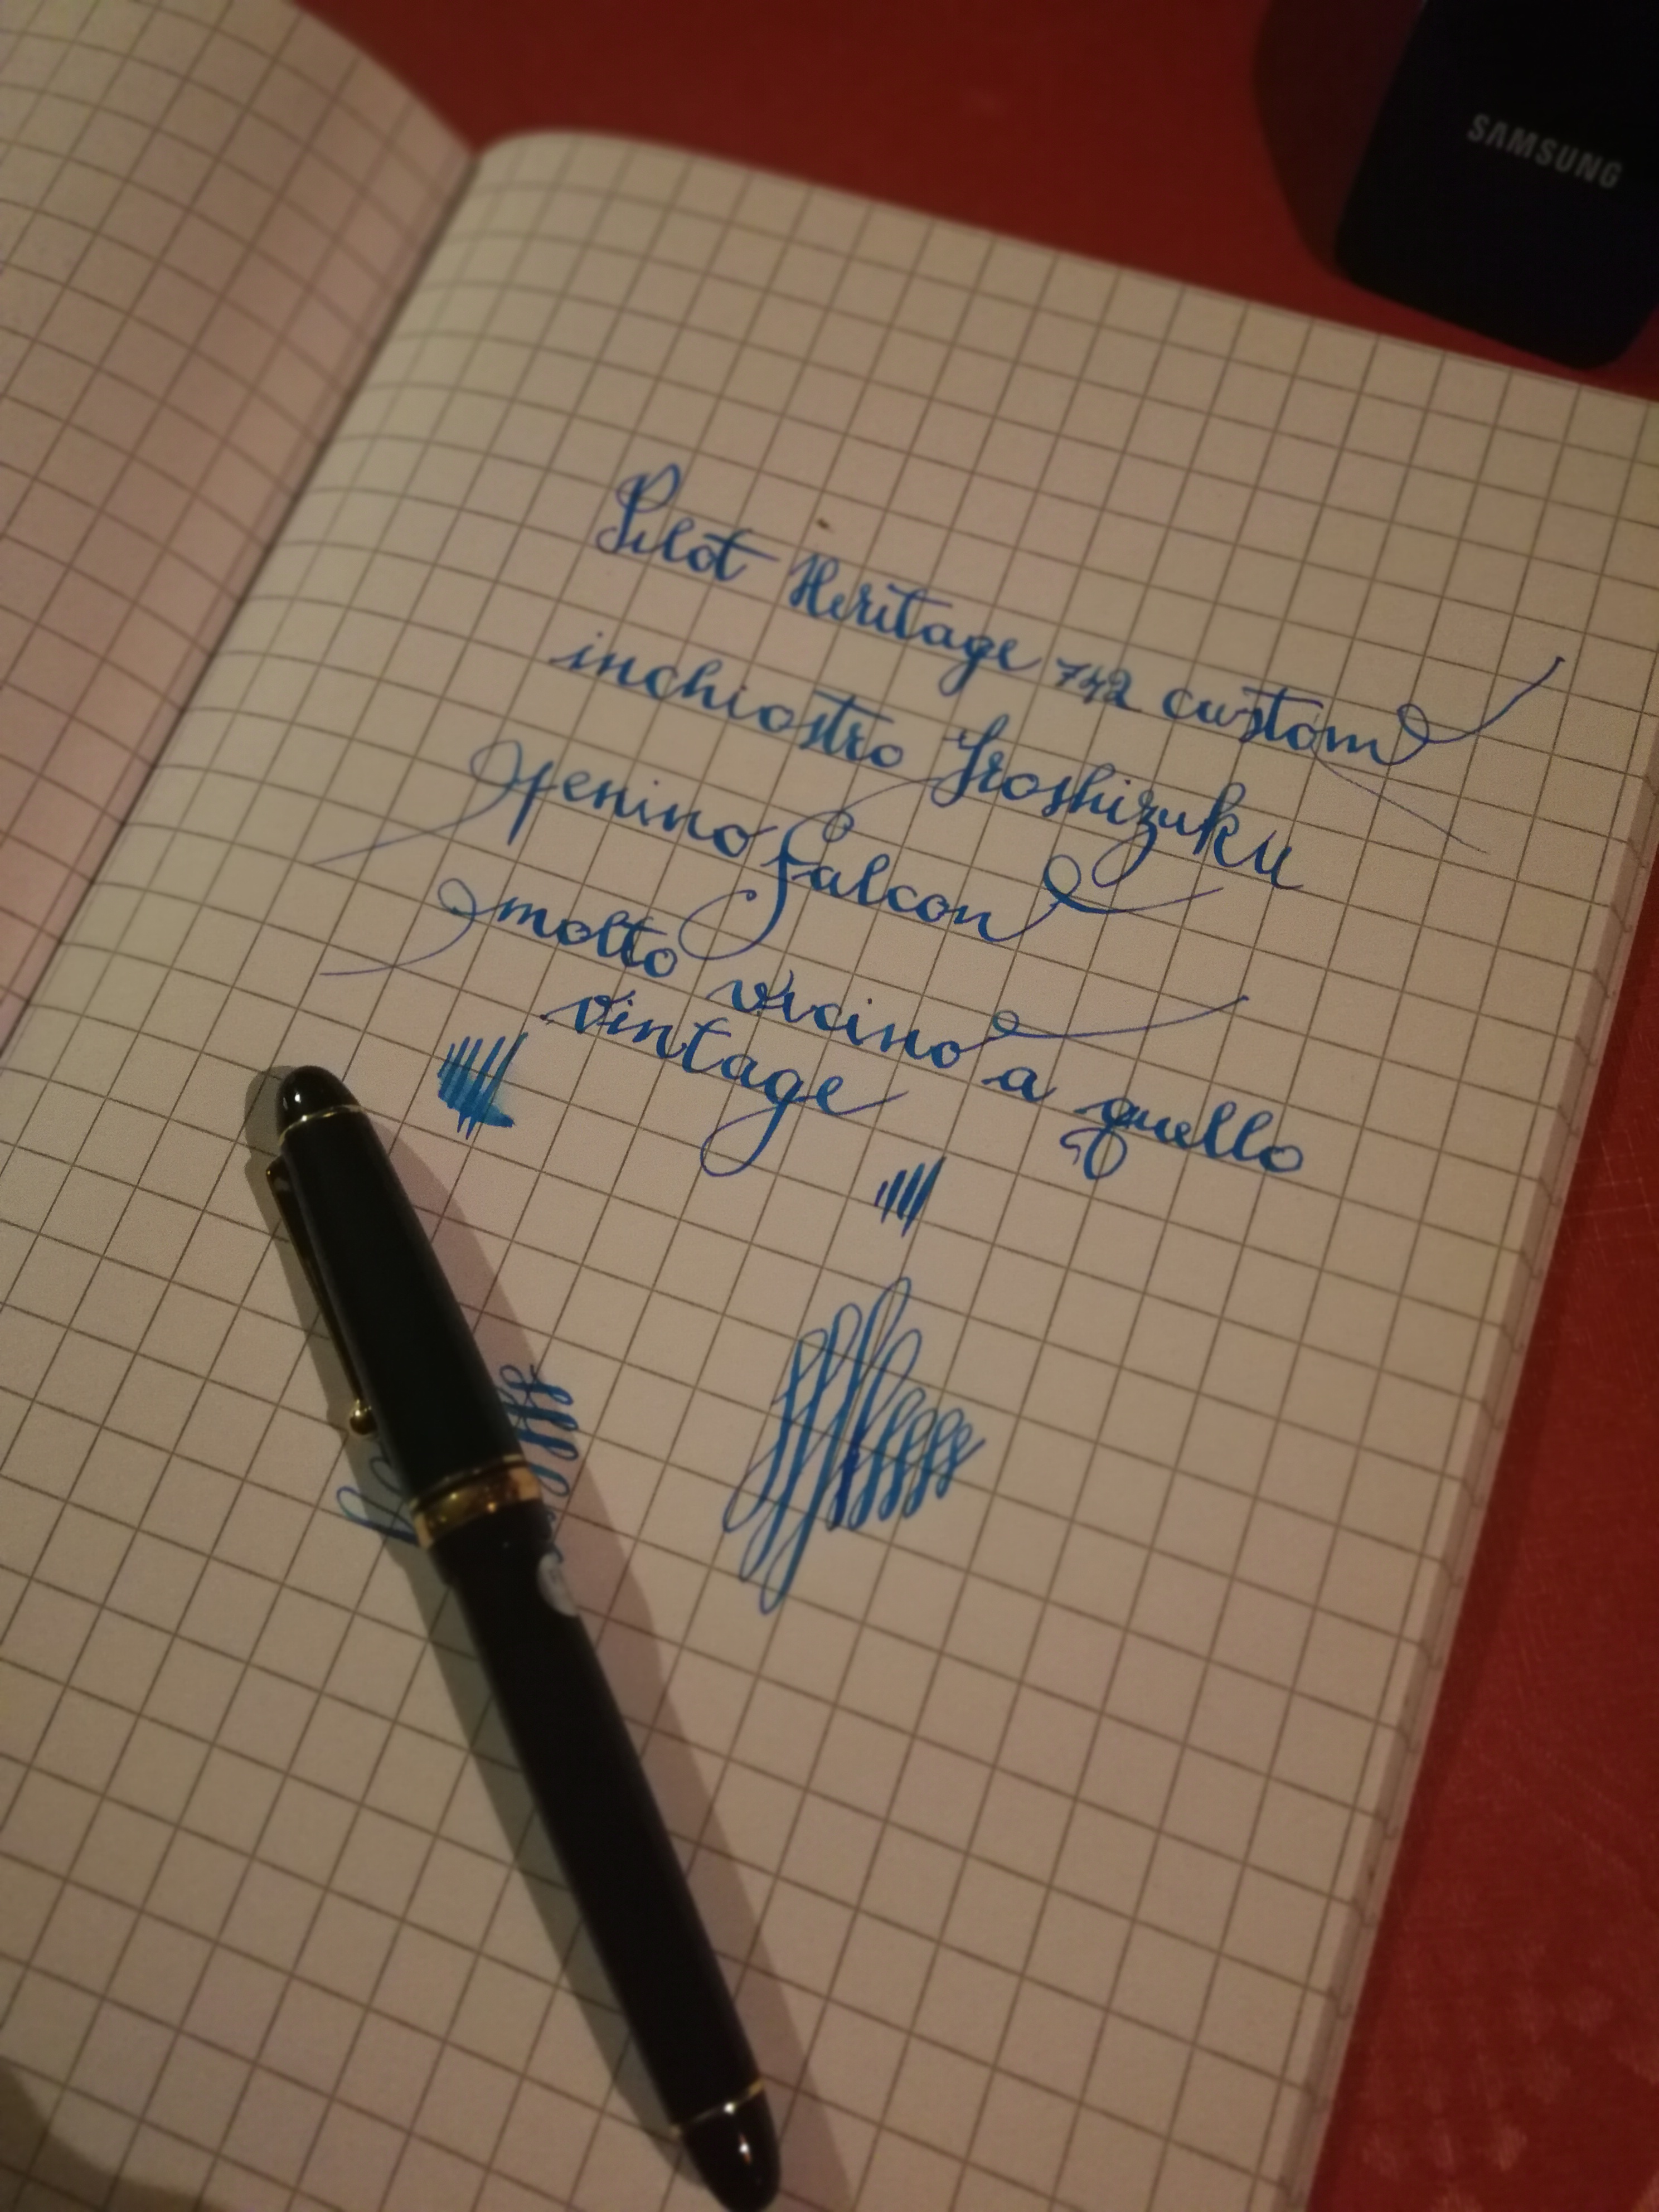 SAMSUNG
Pilot Heritage 742 custom
inchiostro Iroshizuku
penino falcon
molto vicino a quello
vintage